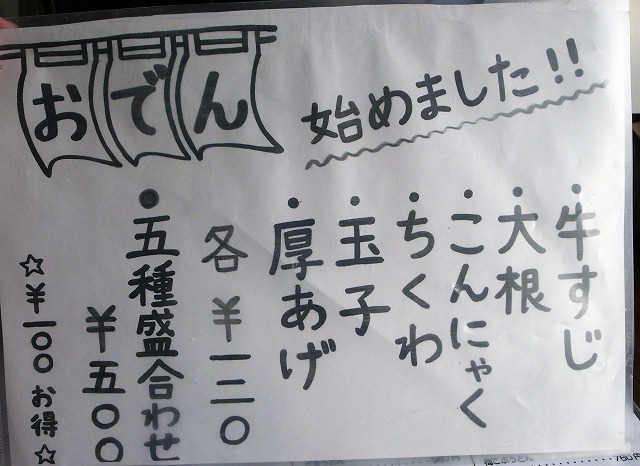 おでん
始めました!!
・牛すじ
・大根
・こんにゃく
・ちくわ
・玉子
・厚あげ
各¥一二〇
●五種盛合わせ
¥五〇〇
☆¥一〇〇お得☆